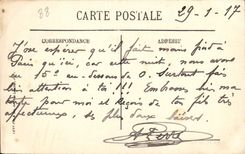 88
CARTE POSTALE
29-1-17
CORRESPONDANCE
ADRESSE
J'ose espérer qu'il fait moins froid à
Paris qu'ici, car cette nuit, nous avons
eu 15° au-dessous de 0. Surtout fais
bien attention à toi !!! Embrasse bien ma
pour moi et reçois de ton fils très
affectueux, ses plus doux baisers.